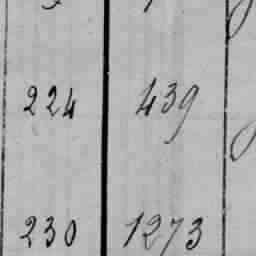 224 439
230 1273